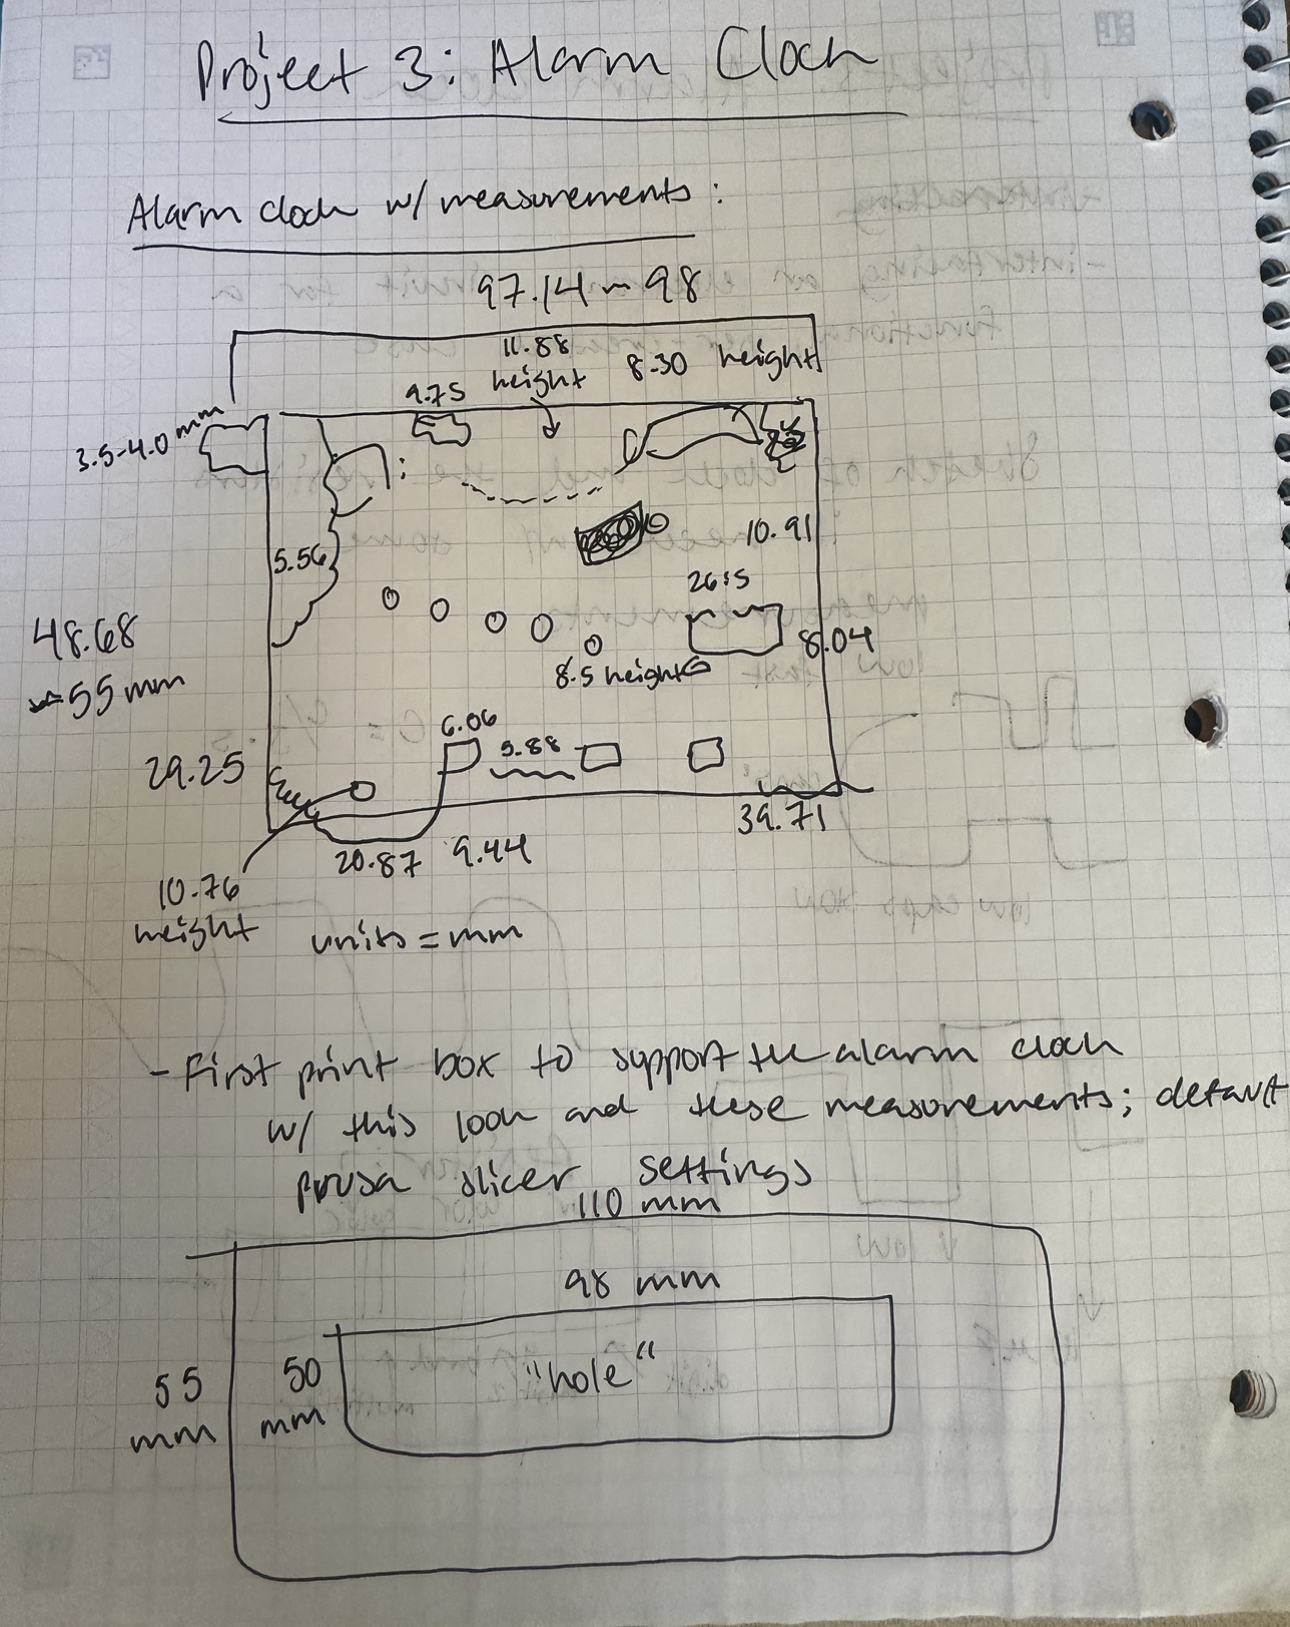 Project 3: Alarm Clock
Alarm clock w/ measurements:
97.14 ~ 98
11.88
height
8.30 height
9.75
3.5-4.0 mm
5.56
10.91
26.5
8.04
8.5 height
48.68
55 mm
6.06
5.88
29.25
39.71
20.87 9.44
10.76
height
units = mm
- First print box to support the alarm clock
w/ this look and these measurements; default
prusa slicer settings
110 mm
98 mm
"hole"
55
mm
50
mm